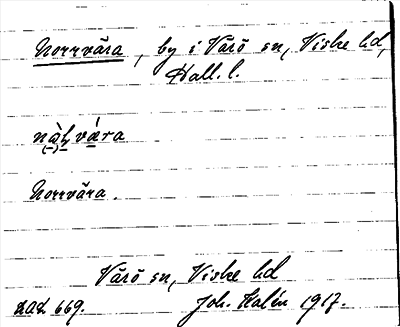 Norrvära, by i Värö sn, Viske hd,
Hall. l.
Norrvära.
Värö sn, Viske hd
LAL 669. Joh. Kalén 1917.